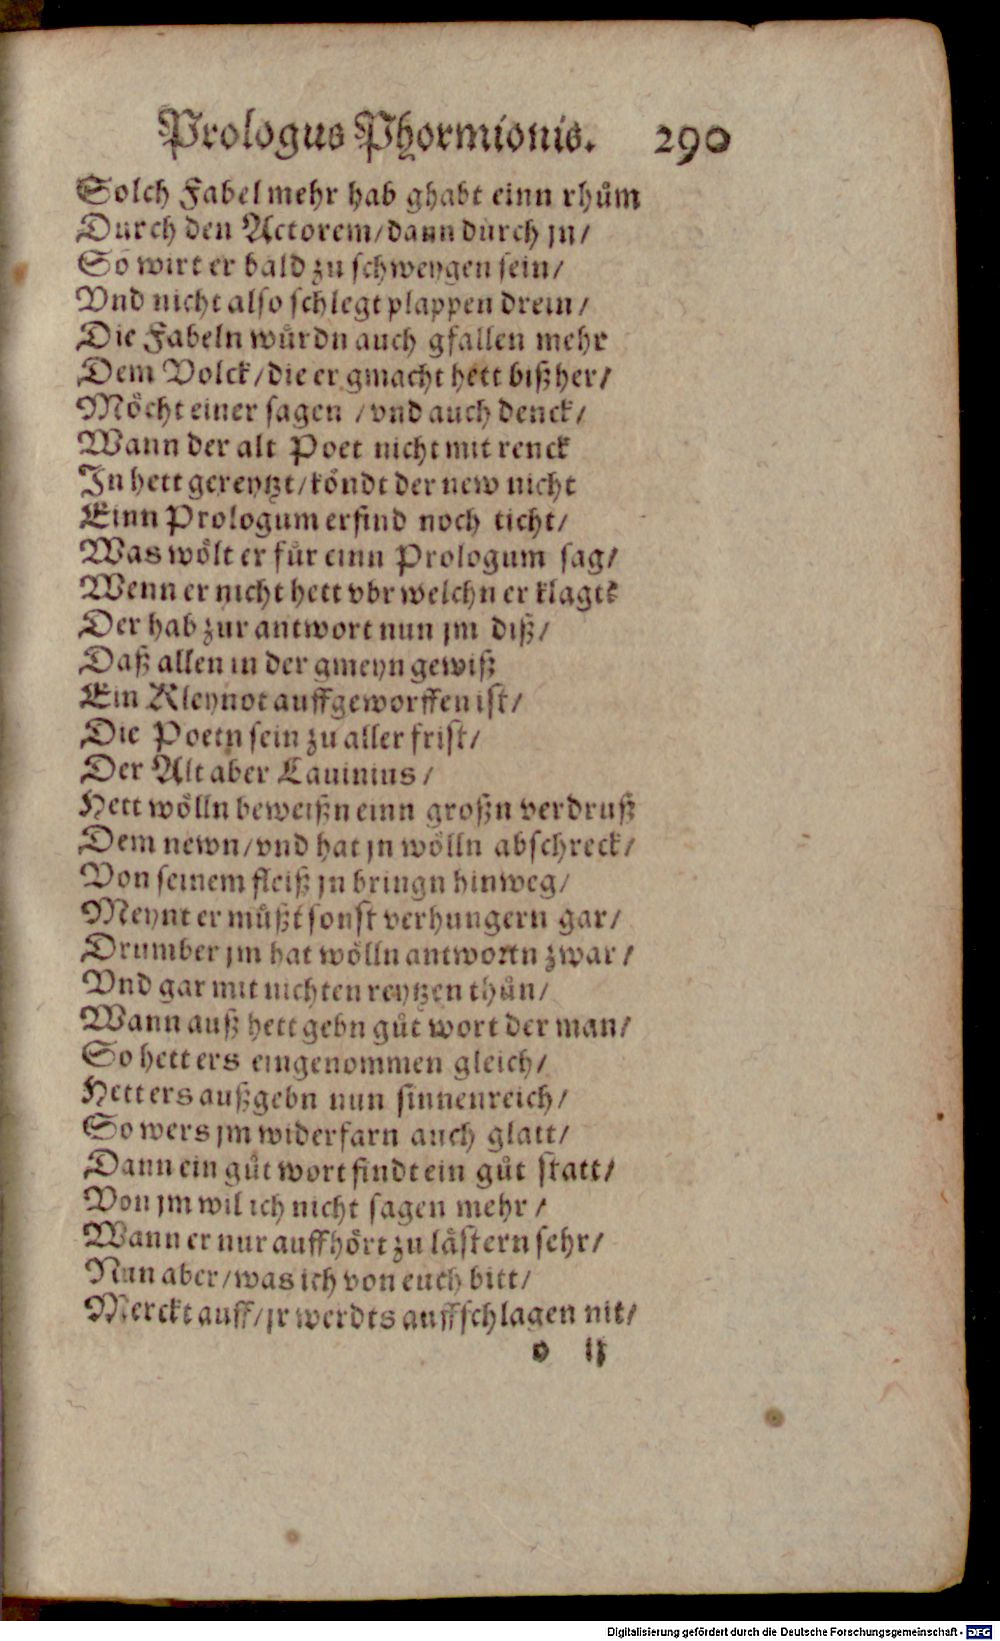 Prologus Phormionis. 290
Solch Fabel mehr hab ghabt einn rhům
Durch den Actorem/dann durch jn/
So wirt er bald zu schweygen sein/
Vnd nicht also schlegt plappen drein/
Die Fabeln wůrdn auch gfallen mehr
Dem Volck/die er gmacht hett bißher/
Mőcht einer sagen /vnd auch denck/
Wann der alt Poet nicht mit renck
In hett gereytzt/kőndt der new nicht
Einn Prologum erfind noch ticht/
Was wőlt er fůr einn Prologum sag/
Wenn er nicht hett vbr welchn er klagt?
Der hab zur antwort nun jm diß/
Daß allen in der gmeyn gewiß
Ein Kleynot auffgeworffen ist/
Die Poetn sein zu aller frist/
Der Alt aber Lauinius/
Hett wőlln beweißn einn großn verdruß
Dem newn/vnd hat jn wőlln abschreck/
Von seinem fleiß jn bringn hinweg/
Meynt er můßt sonst verhungern gar/
Drumb er jm hat wőlln antwortn zwar/
Vnd gar mit nichten reytzen thůn/
Wann auß hett gebn gůt wort der man/
So hett ers eingenommen gleich/
Hett ers außgebn nun sinnenreich/
So wers jm widerfarn auch glatt/
Dann ein gůt wort findt ein gůt statt/
Von jm wil ich nicht sagen mehr/
Wann er nur auffhőrt zu låstern sehr/
Nun aber/was ich von euch bitt/
Merckt auff/jr werdts auffschlagen nit/
o ij
Digitalisierung gefördert durch die Deutsche Forschungsgemeinschaft - DFG